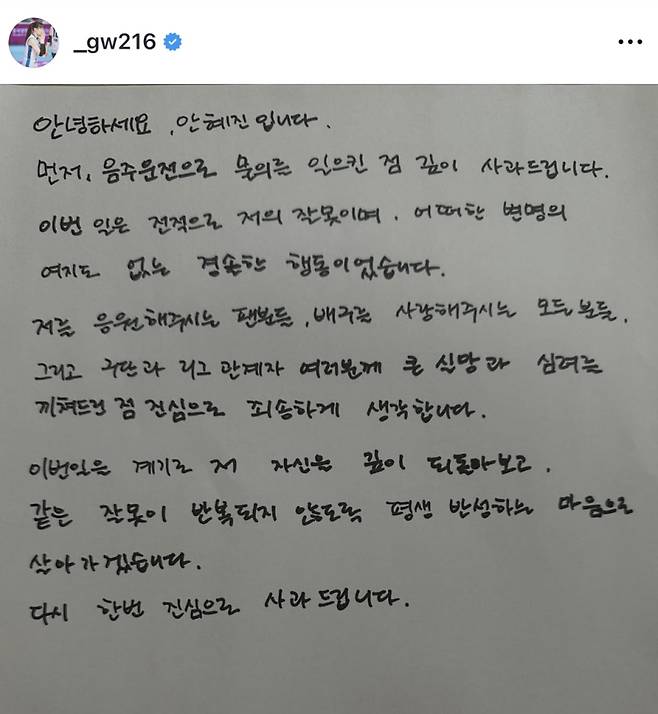 _gw216
안녕하세요, 안혜진입니다.
먼저, 음주운전으로 물의를 일으킨 점 깊이 사과드립니다.
이번 일은 전적으로 저의 잘못이며, 어떠한 변명의
여지도 없는 경솔한 행동이었습니다.
저를 응원해주시는 팬분들, 배구를 사랑해주시는 모든 분들,
그리고 구단과 리그 관계자 여러분께 큰 실망과 심려를
끼쳐드린 점 진심으로 죄송하게 생각합니다.
이번일을 계기로 저 자신을 깊이 되돌아보고,
같은 잘못이 반복되지 않도록 평생 반성하는 마음으로
살아가겠습니다.
다시 한번 진심으로 사과드립니다.